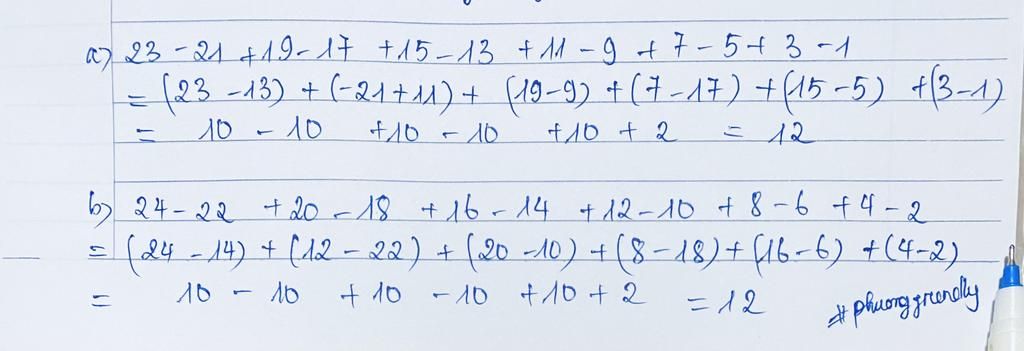 a) 23 - 21 + 19 - 17 + 15 - 13 + 11 - 9 + 7 - 5 + 3 - 1
= (23 - 13) + (-21 + 11) + (19 - 9) + (7 - 17) + (15 - 5) + (3 - 1)
= 10 - 10 + 10 - 10 + 10 + 2 = 12
b) 24 - 22 + 20 - 18 + 16 - 14 + 12 - 10 + 8 - 6 + 4 - 2
= (24 - 14) + (12 - 22) + (20 - 10) + (8 - 18) + (16 - 6) + (4 - 2)
= 10 - 10 + 10 - 10 + 10 + 2 = 12